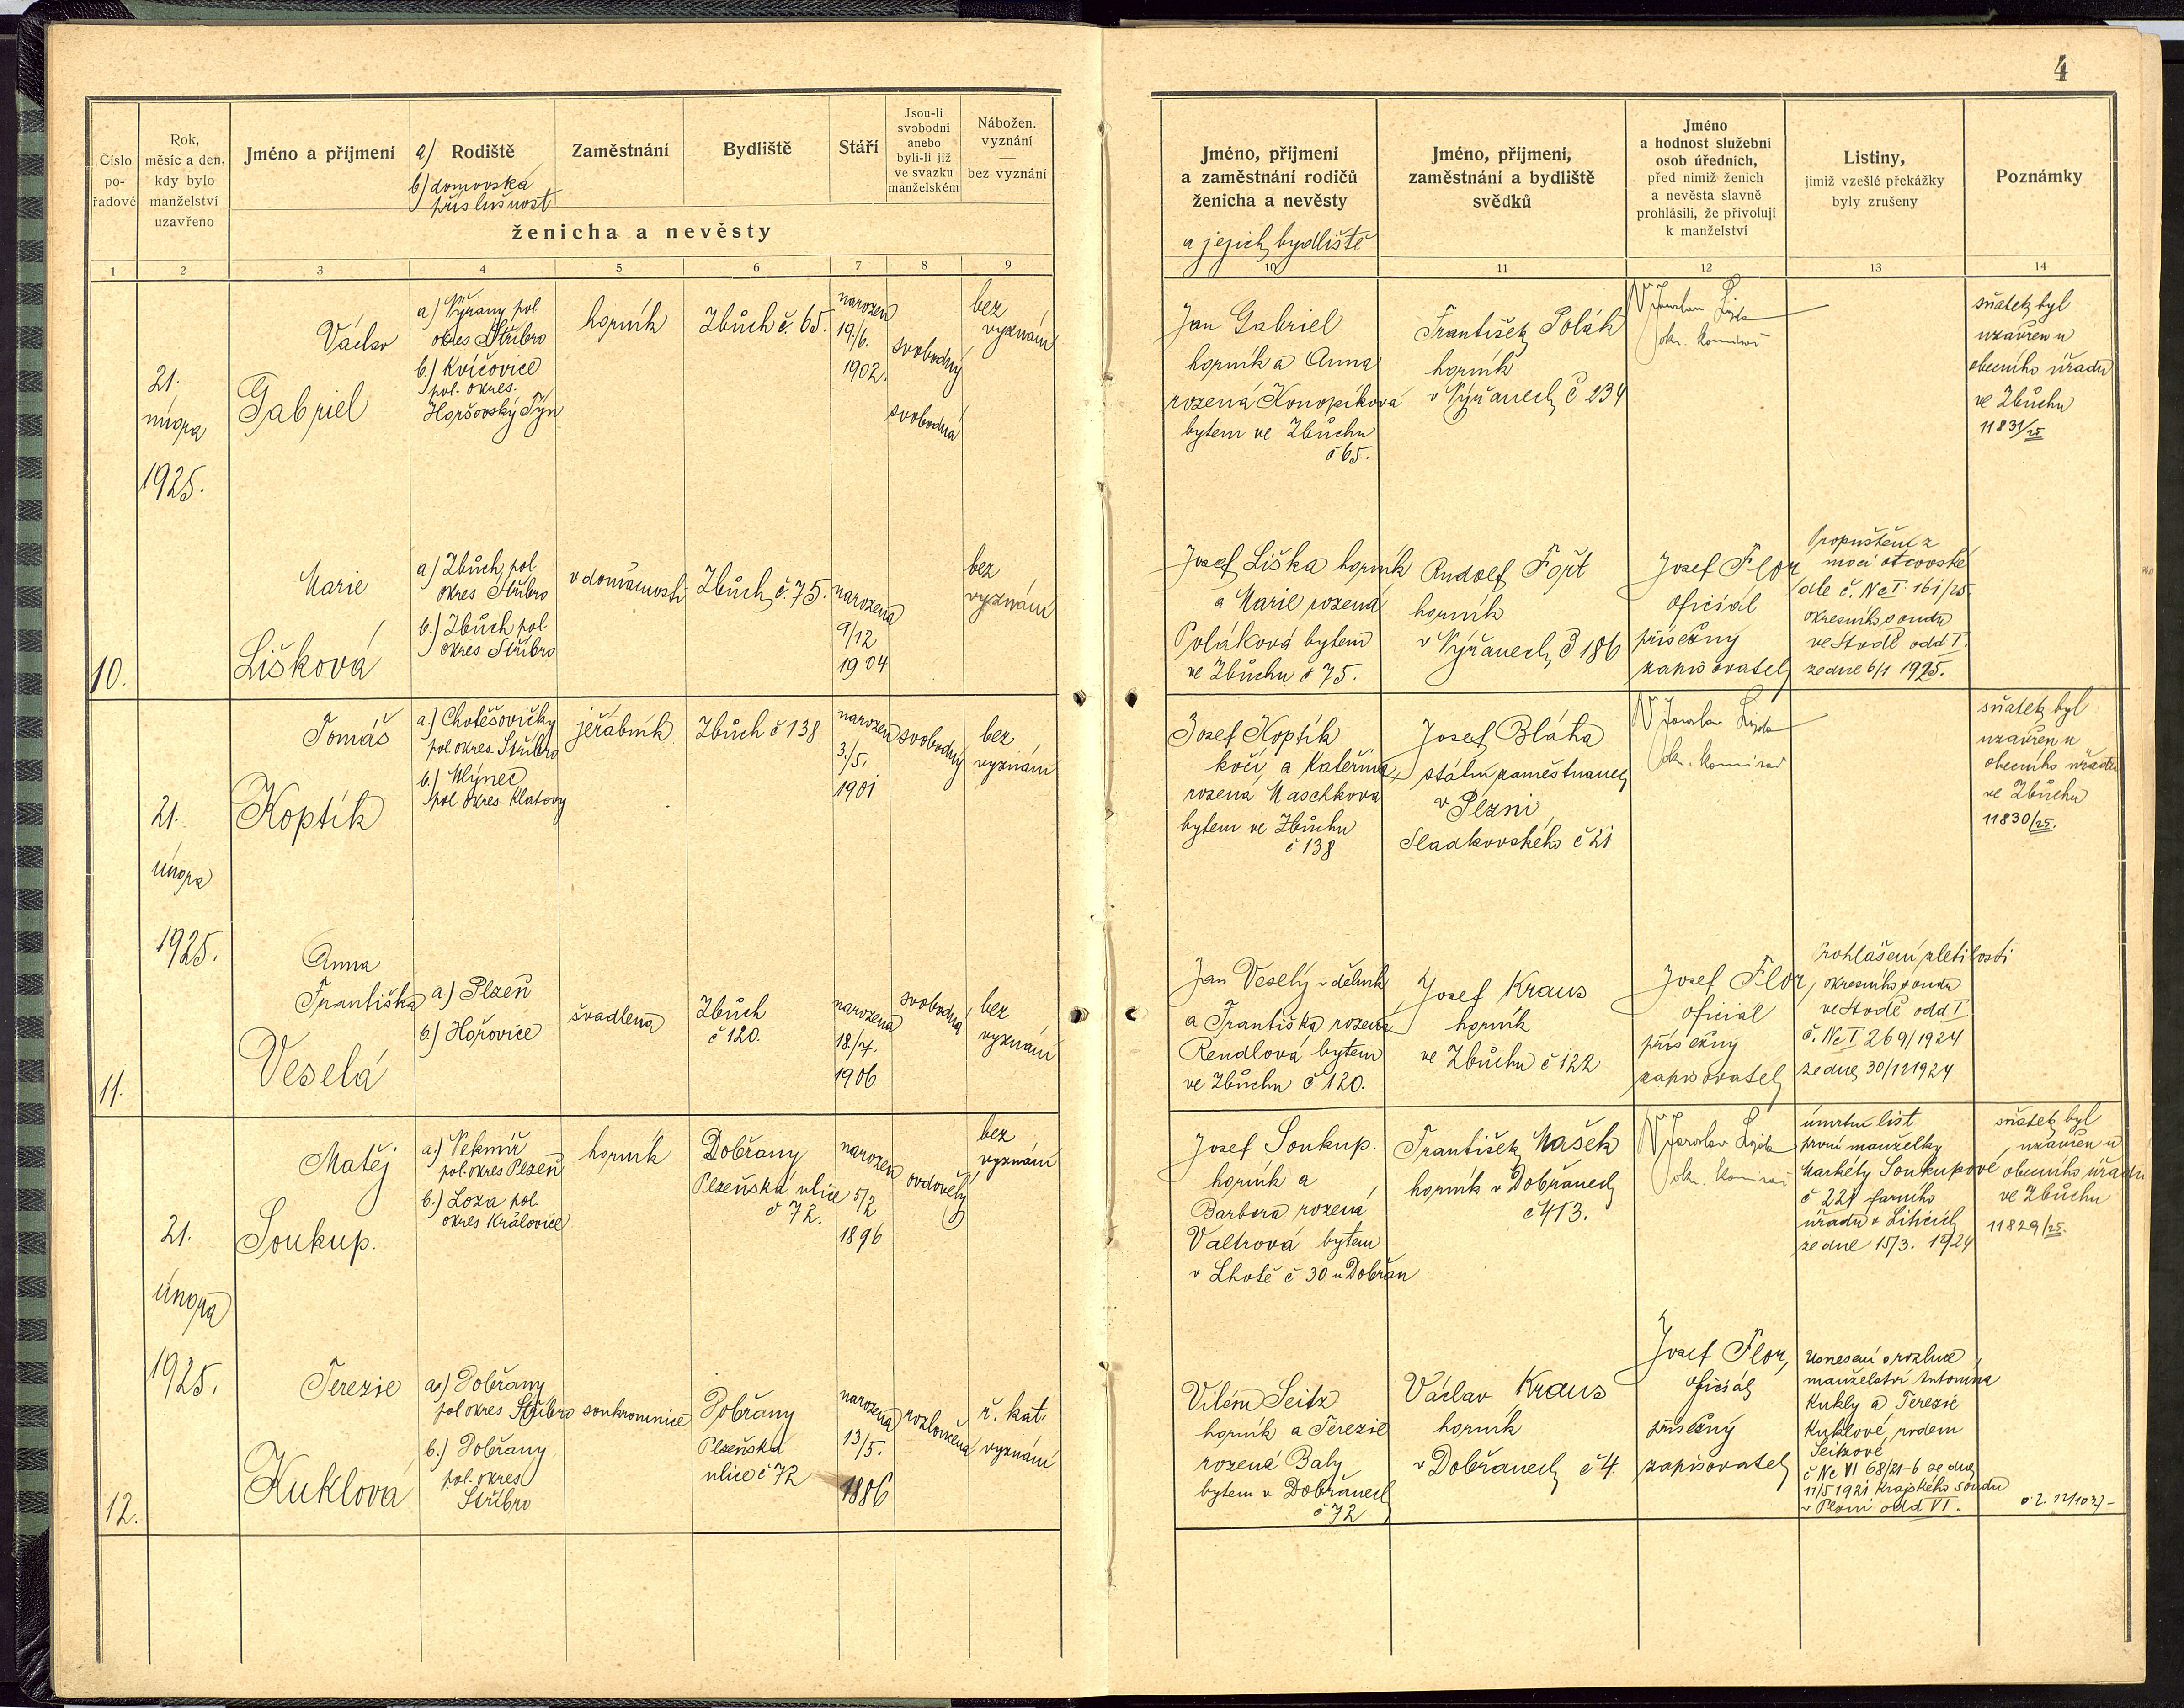 4
Číslo
po-
řadové
Rok,
měsíc a den,
kdy bylo
manželství
uzavřeno
Jméno a příjmení
a) Rodiště
b) domovská
příslušnost
Zaměstnání
Bydliště
Stáří
Jsou-li
svobodni
anebo
byli-li již
ve svazku
manželském
Nábožen.
vyznání
—
bez vyznání
ženicha a nevěsty
Jméno, příjmení
a zaměstnání rodičů
ženicha a nevěsty
a jejich bydliště
Jméno, příjmení,
zaměstnání a bydliště
svědků
Jméno
a hodnost služební
osob úředních,
před nimiž ženich
a nevěsta slavně
prohlásili, že přivolují
k manželství
Listiny,
jimiž vzešlé překážky
byly zrušeny
Poznámky
1 2 3 4 5 6 7 8 9 10 11 12 13 14
10.
21.
února
1925.
Václav
Gabriel
a) Nýřany pol
okres Stříbro
b) Kvíčovice
pol. okres.
Horšovský Týn
horník
Zbůch č. 65.
narozen
19/6.
1902.
svobodný
svobodná
bez
vyznání
Jan Gabriel
horník a Anna
rozená Konopíková
bytem ve Zbůchu
č 65.
František Polák
horník
v Nýřanech č 234
Jaroslav
okr. komisař
sňatek byl
uzavřen u
obecního úřadu
ve Zbůchu
11831/25
Marie
Lišková
a) Zbůch, pol
okres Stříbro
b.) Zbůch pol.
okres Stříbro
v domácnosti
Zbůch č. 75.
narozena
9/12
1904
bez
vyznání
Josef Liška horník
a Marie rozená
Poláková bytem
ve Zbůchu č 75.
Rudolf Fořt
horník
v Nýřanech č 186
Josef Flor
oficiál
přísežný
zapisovatel
Propuštění z
moci otcovské
dle č. Nc I. 161/25
okresního soudu
ve Stodě odd I.
ze dne 6/1 1925.
11.
21.
února
1925.
Tomáš
Koptík
a.) Chotěšovičky
pol okres. Stříbro
b.) Mlýnec
pol okres Klatovy
jeřábník
Zbůch č 138
narozen
3/5.
1901
svobodný
bez
vyznání
Josef Koptík
kočí, a Kateřina
rozená Maschkova
bytem ve Zbůchu
č 138
Josef Bláha
státní zaměstnanec
v Plzni,
Sladkovského č 21
Jaroslav
okr. komisař
sňatek byl
uzavřen u
obecního úřadu
ve Zbůchu
11830/25.
Anna
Františka
Veselá
a.) Plzeň
b.) Hořovice
švadlena
Zbůch
č 120.
narozena
18/7.
1906.
svobodná
bez
vyznání
Jan Veselý dělník
a Františka rozená
Rendlová bytem
ve Zbůchu č 120.
Josef Kraus
horník
ve Zbůchu č 122
Josef Flor,
oficiál
přísežný
zapisovatel
Prohlášení zletilosti
okresního soudu
ve Stodě odd I
č. Nc I 269/1924
ze dne 30/12 1924
12.
21.
února
1925.
Matěj
Soukup.
a.) Nekmíř
pol. okres Plzeň
b.) Loza pol.
okres Kralovice
horník
Dobřany
Plzeňská ulice
č 72.
narozen
5/2
1896
ovdovělý
bez
vyznání
Josef Soukup.
horník a
Barbora rozená
Valtrová bytem
v Lhotě č 30 u Dobřan
František Mašek
horník v Dobřanech
č 413.
Jaroslav
okr. komisař
úmrtní list
první manželky
Markéty Soukupové
č 221 farního
úřadu v Liticích
ze dne 15/3. 1924
sňatek byl
uzavřen u
obecního úřadu
ve Zbůchu
11829/25.
Terezie
Kuklová
a.) Dobřany
pol okres Stříbro
b.) Dobřany
pol. okres
Stříbro
soukromnice
Dobřany
Plzeňská
ulice č 72
narozena
13/5.
1886
rozloučená
ř. kat.
vyznání
Vilém Seitz
horník a Terezie
rozená Baby
bytem v Dobřanech
č 72
Václav Kraus
horník
v Dobřanech č 4.
Josef Flor,
oficiál
přísežný
zapisovatel
Usnesení o rozluce
manželství Antonína
Kukly a Terezie
Kuklové, rodem
Seitzové
č Nc VI 68/21-6 ze dne
11/5 1921 Krajského soudu
v Plzni odd VI.